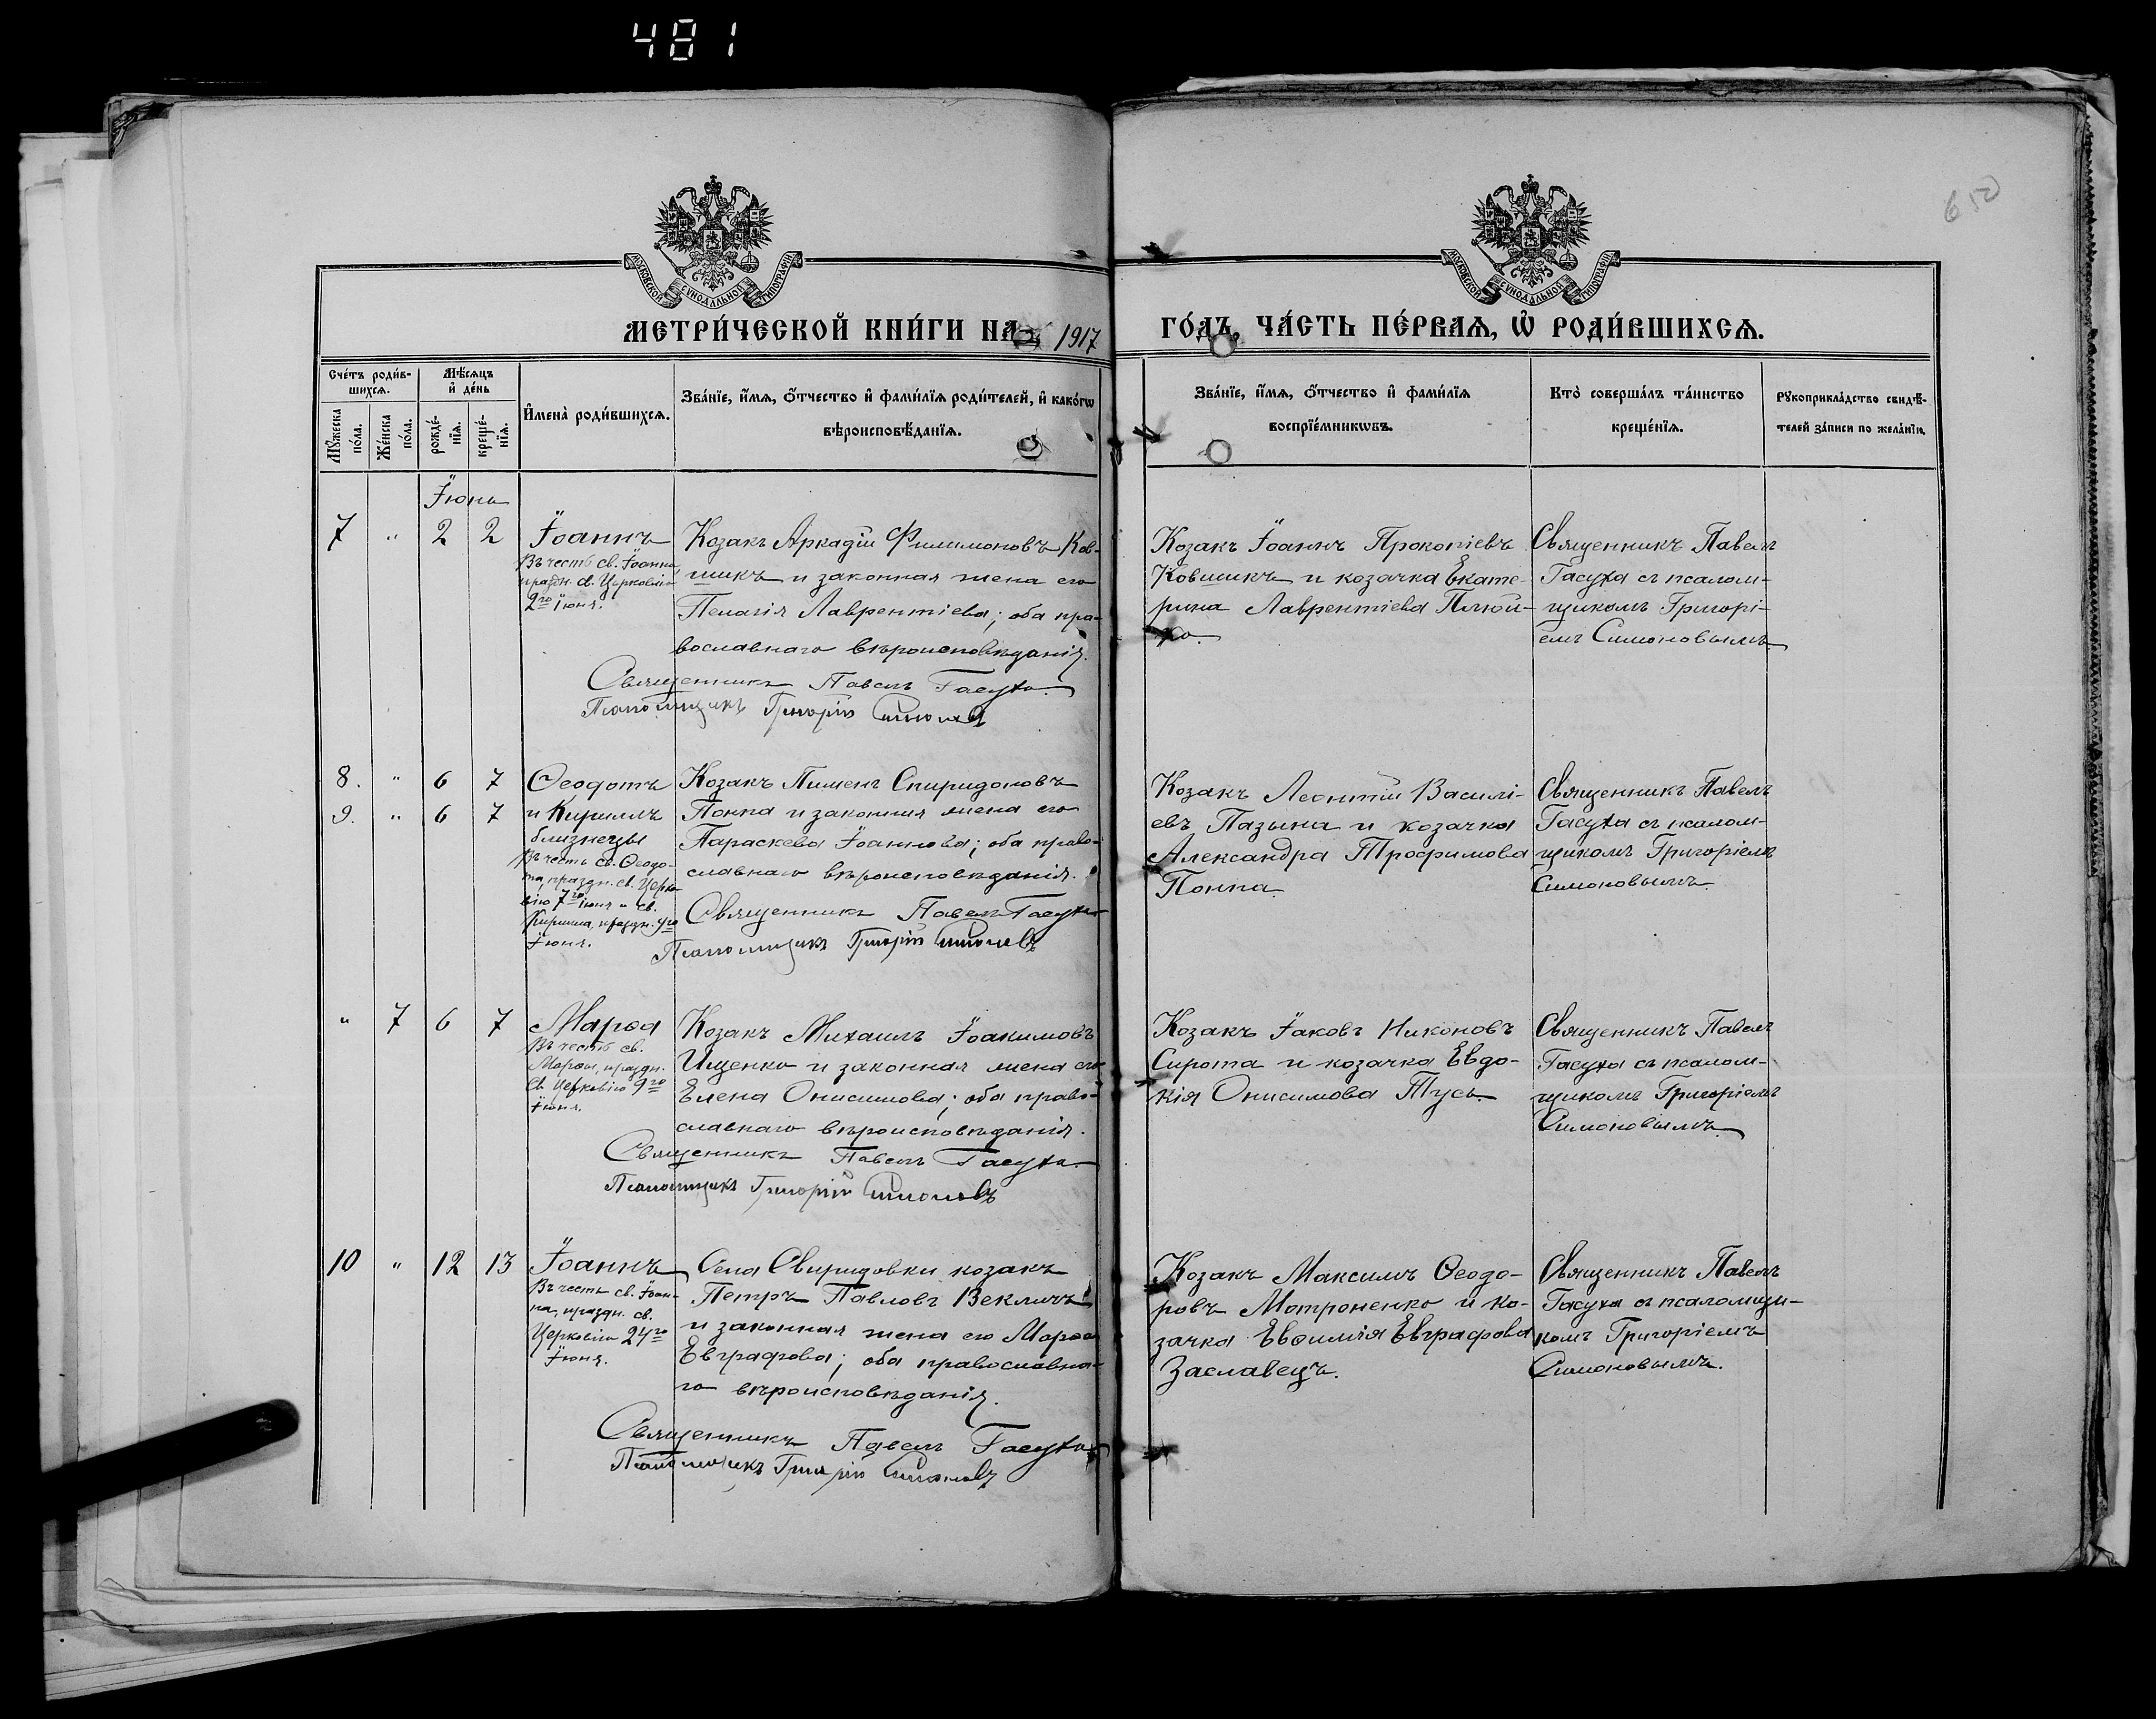 481
650
МОСКОВСКОЙ СУНОДАЛЬНОЙ ТИПОГРАФИИ
МОСКОВСКОЙ СУНОДАЛЬНОЙ ТИПОГРАФИИ
МЕТРИ́ЧЕСКОЙ КНИ́ГИ НА 1917
ГО́ДЪ, ЧА́СТЬ ПЕ́РВАЯ, Ѽ РОДИ́ВШИХСЯ.
Сче́тъ роди́в-
шихся.
Мѣ́сяцъ
и҆ де́нь
Мꙋ́жеска
по́ла.
Же́нска
по́ла.
рожде́-
нїя.
креще́-
нїя.
И҆мена̀ роди́вшихся.
Зва́нїе, и҆́мя, ѻ҆́тчество и҆ фами́лїя роди́телей, и҆ како́гѡ
вѣроисповѣ́данїя.
Зва́нїе, и҆́мя, ѻ҆́тчество и҆ фами́лїя
воспрїе́мникѡвъ.
Кто̀ соверша́лъ та́инство
креще́нїя.
Рꙋкоприкла́дство свидѣ́-
телей за́писи по жела́нїю.
Іюнь
7 " 2 2 Іоаннъ
Въ честь св. Іоанна,
праздн. св. Церковію
2го Іюня.
Козакъ Аркадій Филимоновъ Ков-
шикъ и законная жена его
Пелагія Лаврентіева; оба пра-
вославнаго вѣроисповѣданія.
Священникъ Павелъ Гасуха
Псаломщикъ Григорій Симоновъ
Козакъ Іоаннъ Прокопіевъ
Ковшикъ и козачка Екате-
рина Лаврентіева Плюй-
ко.
Священникъ Павелъ
Гасуха съ псалом-
щикомъ Григорі-
емъ Симоновымъ
8. " 6 7 Ѳеодотъ
9. " 6 7 и Кириллъ
близнецы
Въ честь св. Ѳеодо-
та, праздн. св. Церко-
вію 7го Іюня и св.
Кирилла, праздн. 9го
Іюня.
Козакъ Пименъ Спиридоновъ
Поппа и законная жена его
Параскева Іоаннова; оба право-
славнаго вѣроисповѣданія.
Священникъ Павелъ Гасуха
Псаломщикъ Григорій Симоновъ
Козакъ Леонтій Василі-
евъ Пазына и козачка
Александра Трофимова
Поппа
Священникъ Павелъ
Гасуха съ псалом-
щикомъ Григоріемъ
Симоновымъ
" 7 6 7 Марѳа
Въ честь св.
Марѳы, праздн.
св. Церковію 9го
Іюня.
Козакъ Михаилъ Іоакимовъ
Ищенко и законная жена его
Елена Онисимова; оба право-
славнаго вѣроисповѣданія.
Священникъ Павелъ Гасуха
Псаломщикъ Григорій Симоновъ
Козакъ Іаковъ Никоновъ
Сирота и козачка Евдо-
кія Онисимова Тусь.
Священникъ Павелъ
Гасуха съ псалом-
щикомъ Григоріемъ
Симоновымъ.
10 " 12 13 Іоаннъ
Въ честь св. Іоан-
на, праздн. св.
Церковію 24го
Іюня.
Села Свиридовки козакъ
Петръ Павловъ Векличъ
и законная жена его Марѳа
Евграфова; оба православна-
го вѣроисповѣданія.
Священникъ Павелъ Гасуха
Псаломщикъ Григорій Симоновъ
Козакъ Максимъ Ѳеодо-
ровъ Матроненко и ко-
зачка Евѳимія Евграфова
Заславецъ.
Священникъ Павелъ
Гасуха съ псаломщи-
комъ Григоріемъ
Симоновымъ.